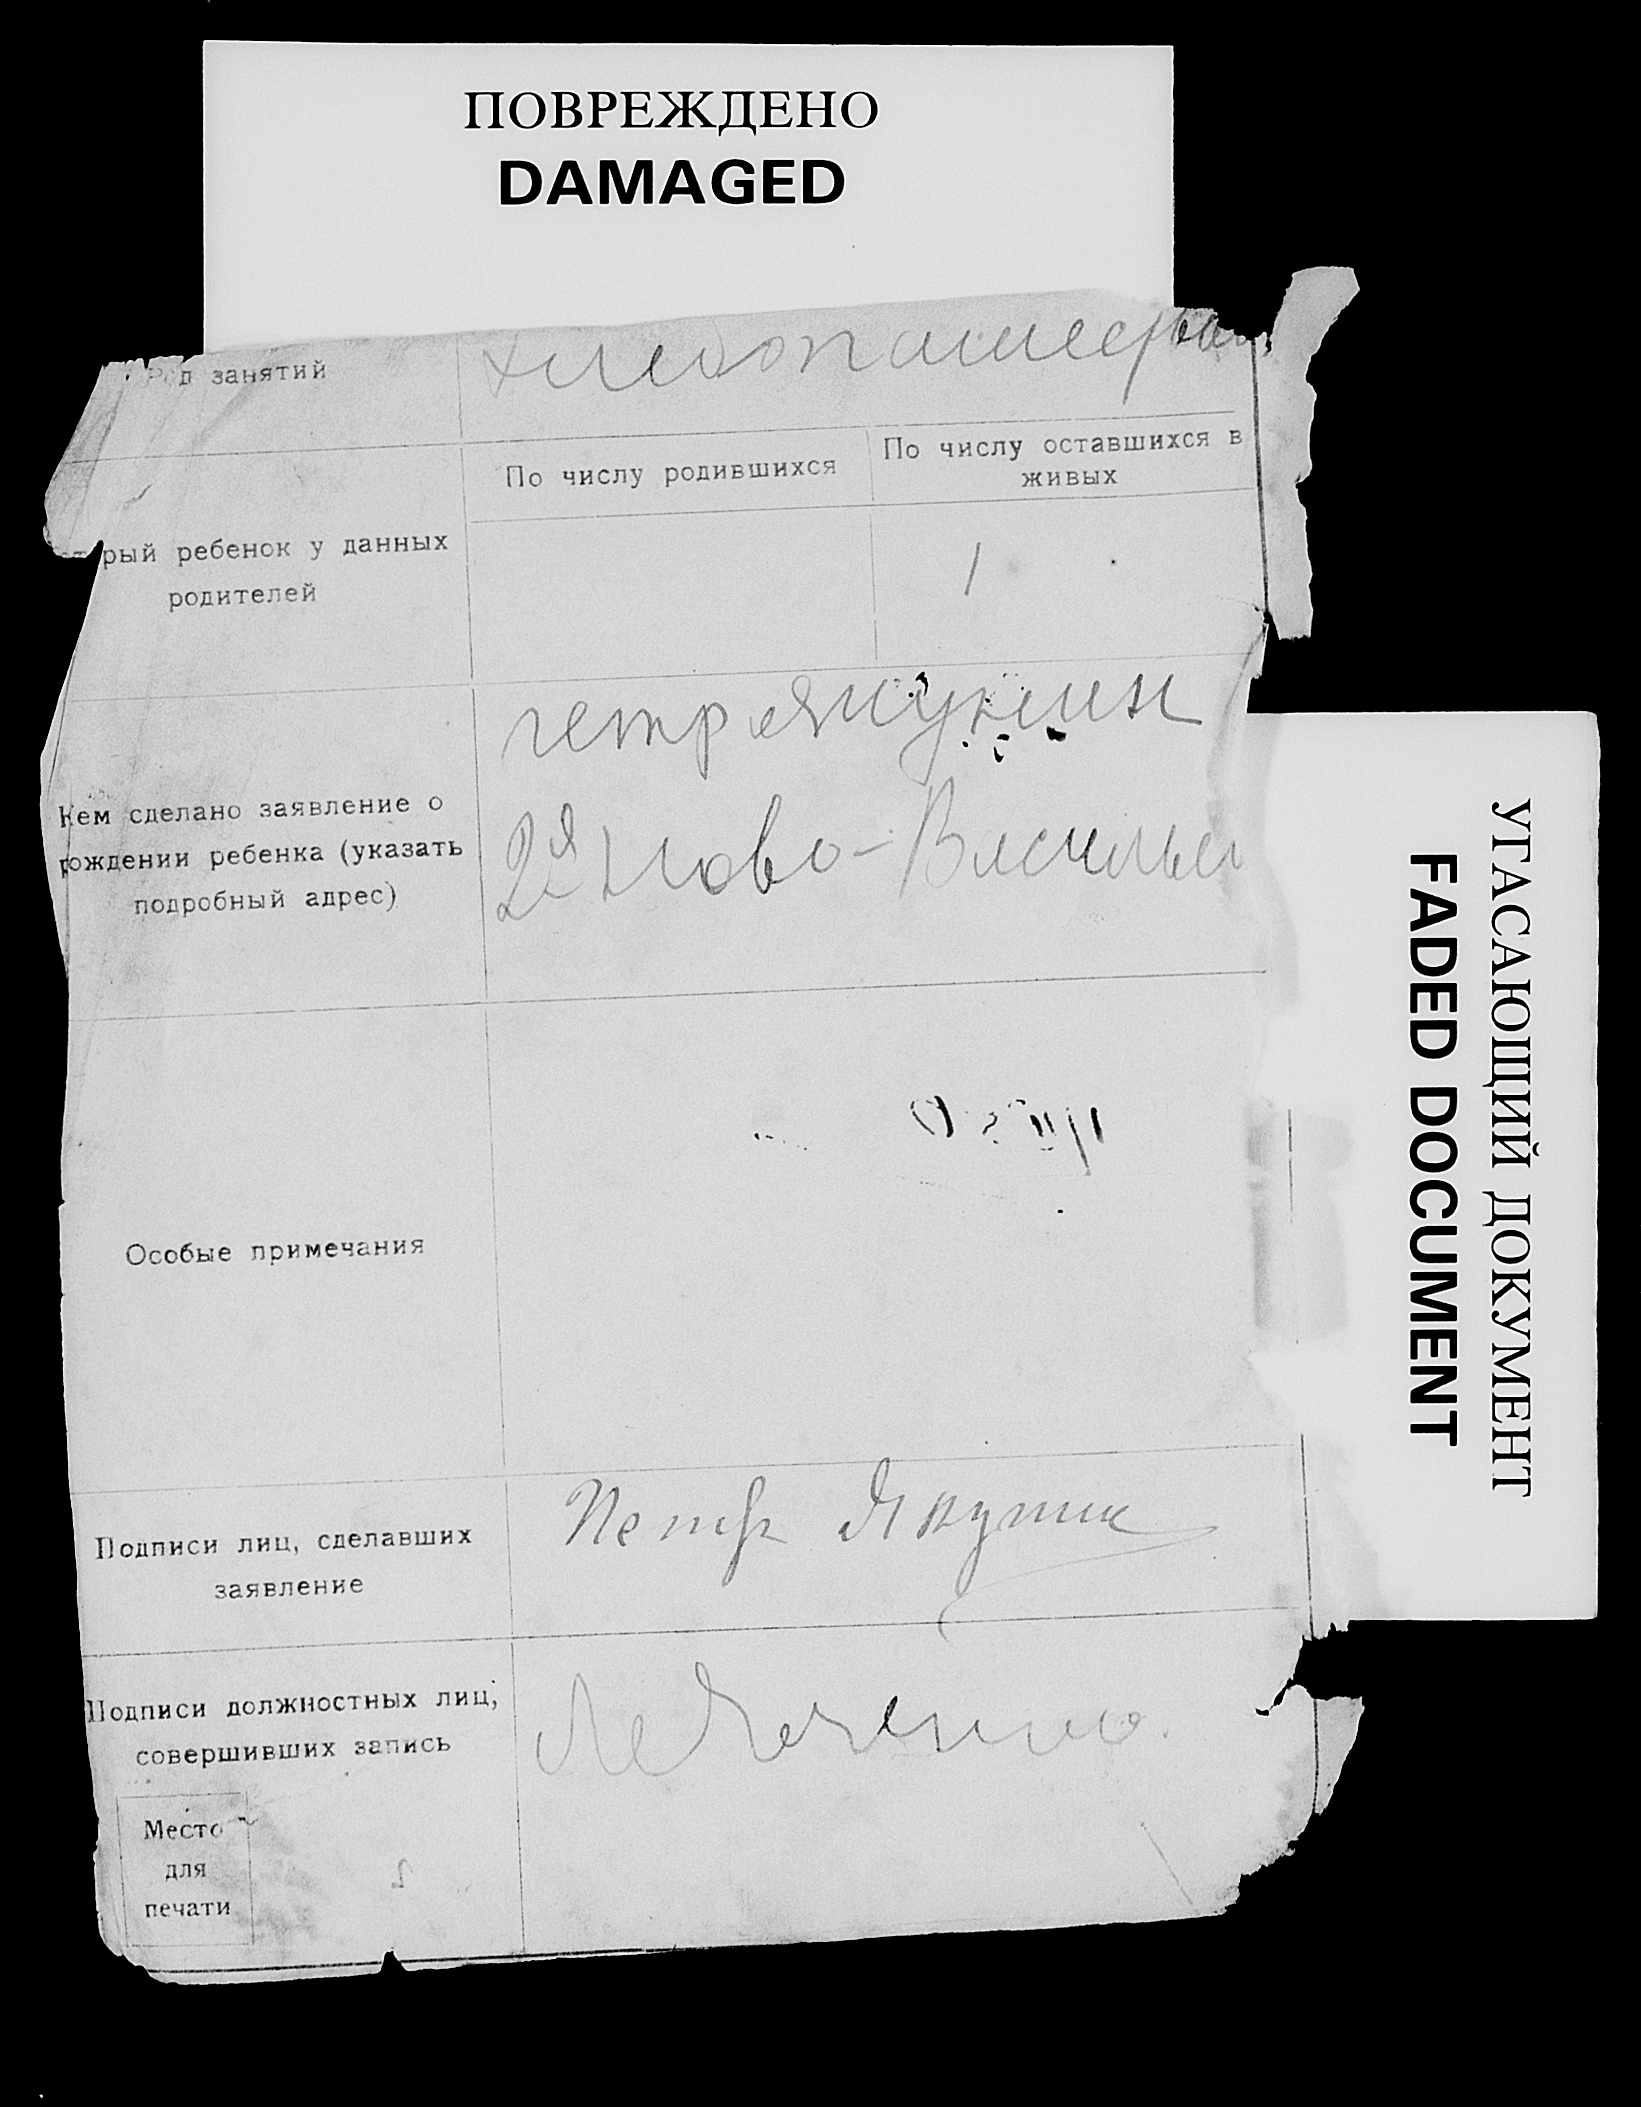 ПОВРЕЖДЕНО
DAMAGED
Род занятий
По числу родившихся
По числу оставшихся в
живых
рый ребенок у данных
родителей
1
Кем сделано заявление о
рождении ребенка (указать
подробный адрес)
петр
2я Ново-Васильев
Особые примечания
Подписи лиц, сделавших
заявление
Петр Якунин
Подписи должностных лиц,
совершивших запись
Место
для
печати
УГАСАЮЩИЙ ДОКУМЕНТ
FADED DOCUMENT